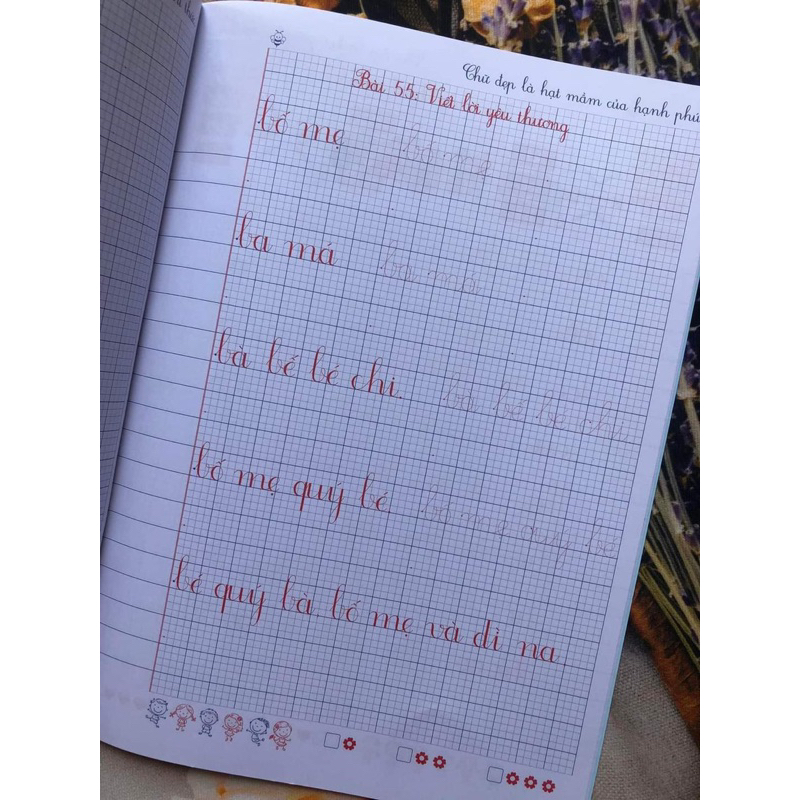 Chữ đẹp là hạt mầm của hạnh phú
Bài 55: Viết lời yêu thương
bố mẹ bố mẹ
ba má ba má
bà bế bé chi. bà bế bé chi
bố mẹ quý bé bố mẹ quý bé
bé quý bà bố mẹ và dì na